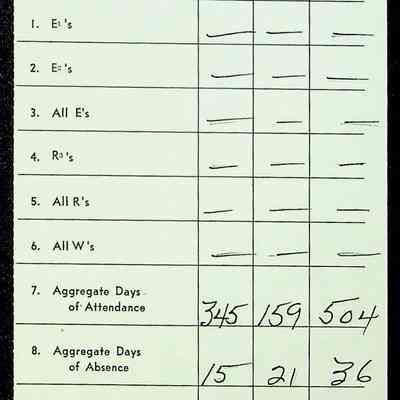 1. E¹'s — — —
2. E²'s — — —
3. All E's — — —
4. R³'s — — —
5. All R's — — —
6. All W's — — —
7. Aggregate Days
of Attendance 345 159 504
8. Aggregate Days
of Absence 15 21 36